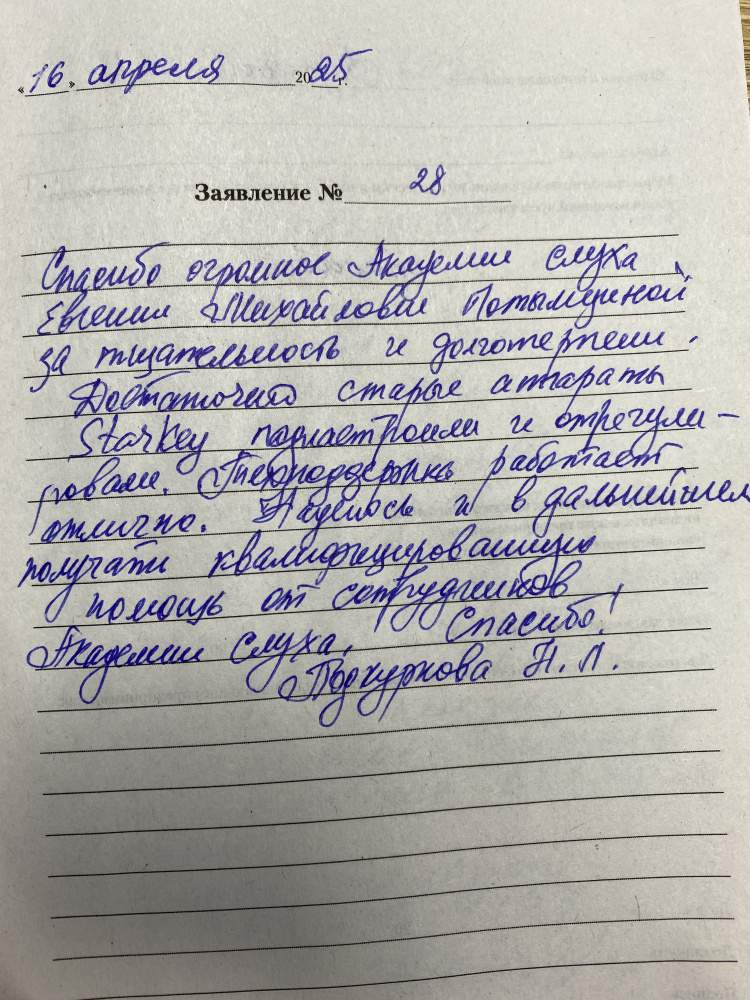 «16» апреля 2025 г.
Заявление № 28
Спасибо огромное Академии слуха,
Евгении Михайловне
за тщательность и долготерпение.
Достаточно старые аппараты
Starkey поднастроили и отрегули-
ровали. Техподдержка работает
отлично. Надеюсь и в дальнейшем
получать квалифицированную
помощь от сотрудников
Академии слуха. Спасибо!
Н. Л.